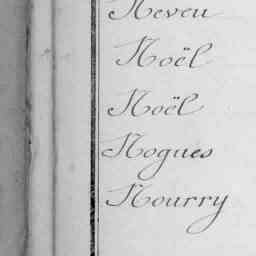 Neveu
Noël
Noël
Nogues
Nourry